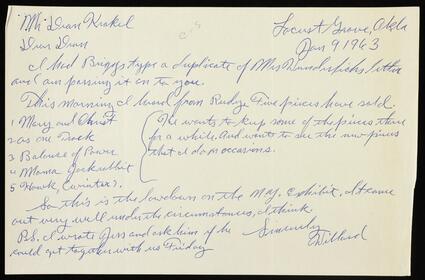 Mr Dean Krakel
Locust Grove, Okla
Jan 9 1963
Dear Dean
I had Briggs type a duplicate of Mrs letter
and I am passing it on to you.
This morning I heard from Rudge Five pieces have sold.
1 Mary and Christ
2 as one Track
3 Balance of Power
4 Mama Jackrabbit
5 Hawk (winter).
(He wants to keep some of the pieces there
for a while. And wants to see the new pieces
that I do on occasions.
So this is the lowdown on the exhibit, I came
out very well under the circumstances, I think.
P.S. I wrote Jess and ask him if he
could get together with us Friday
Sincerely
Willard